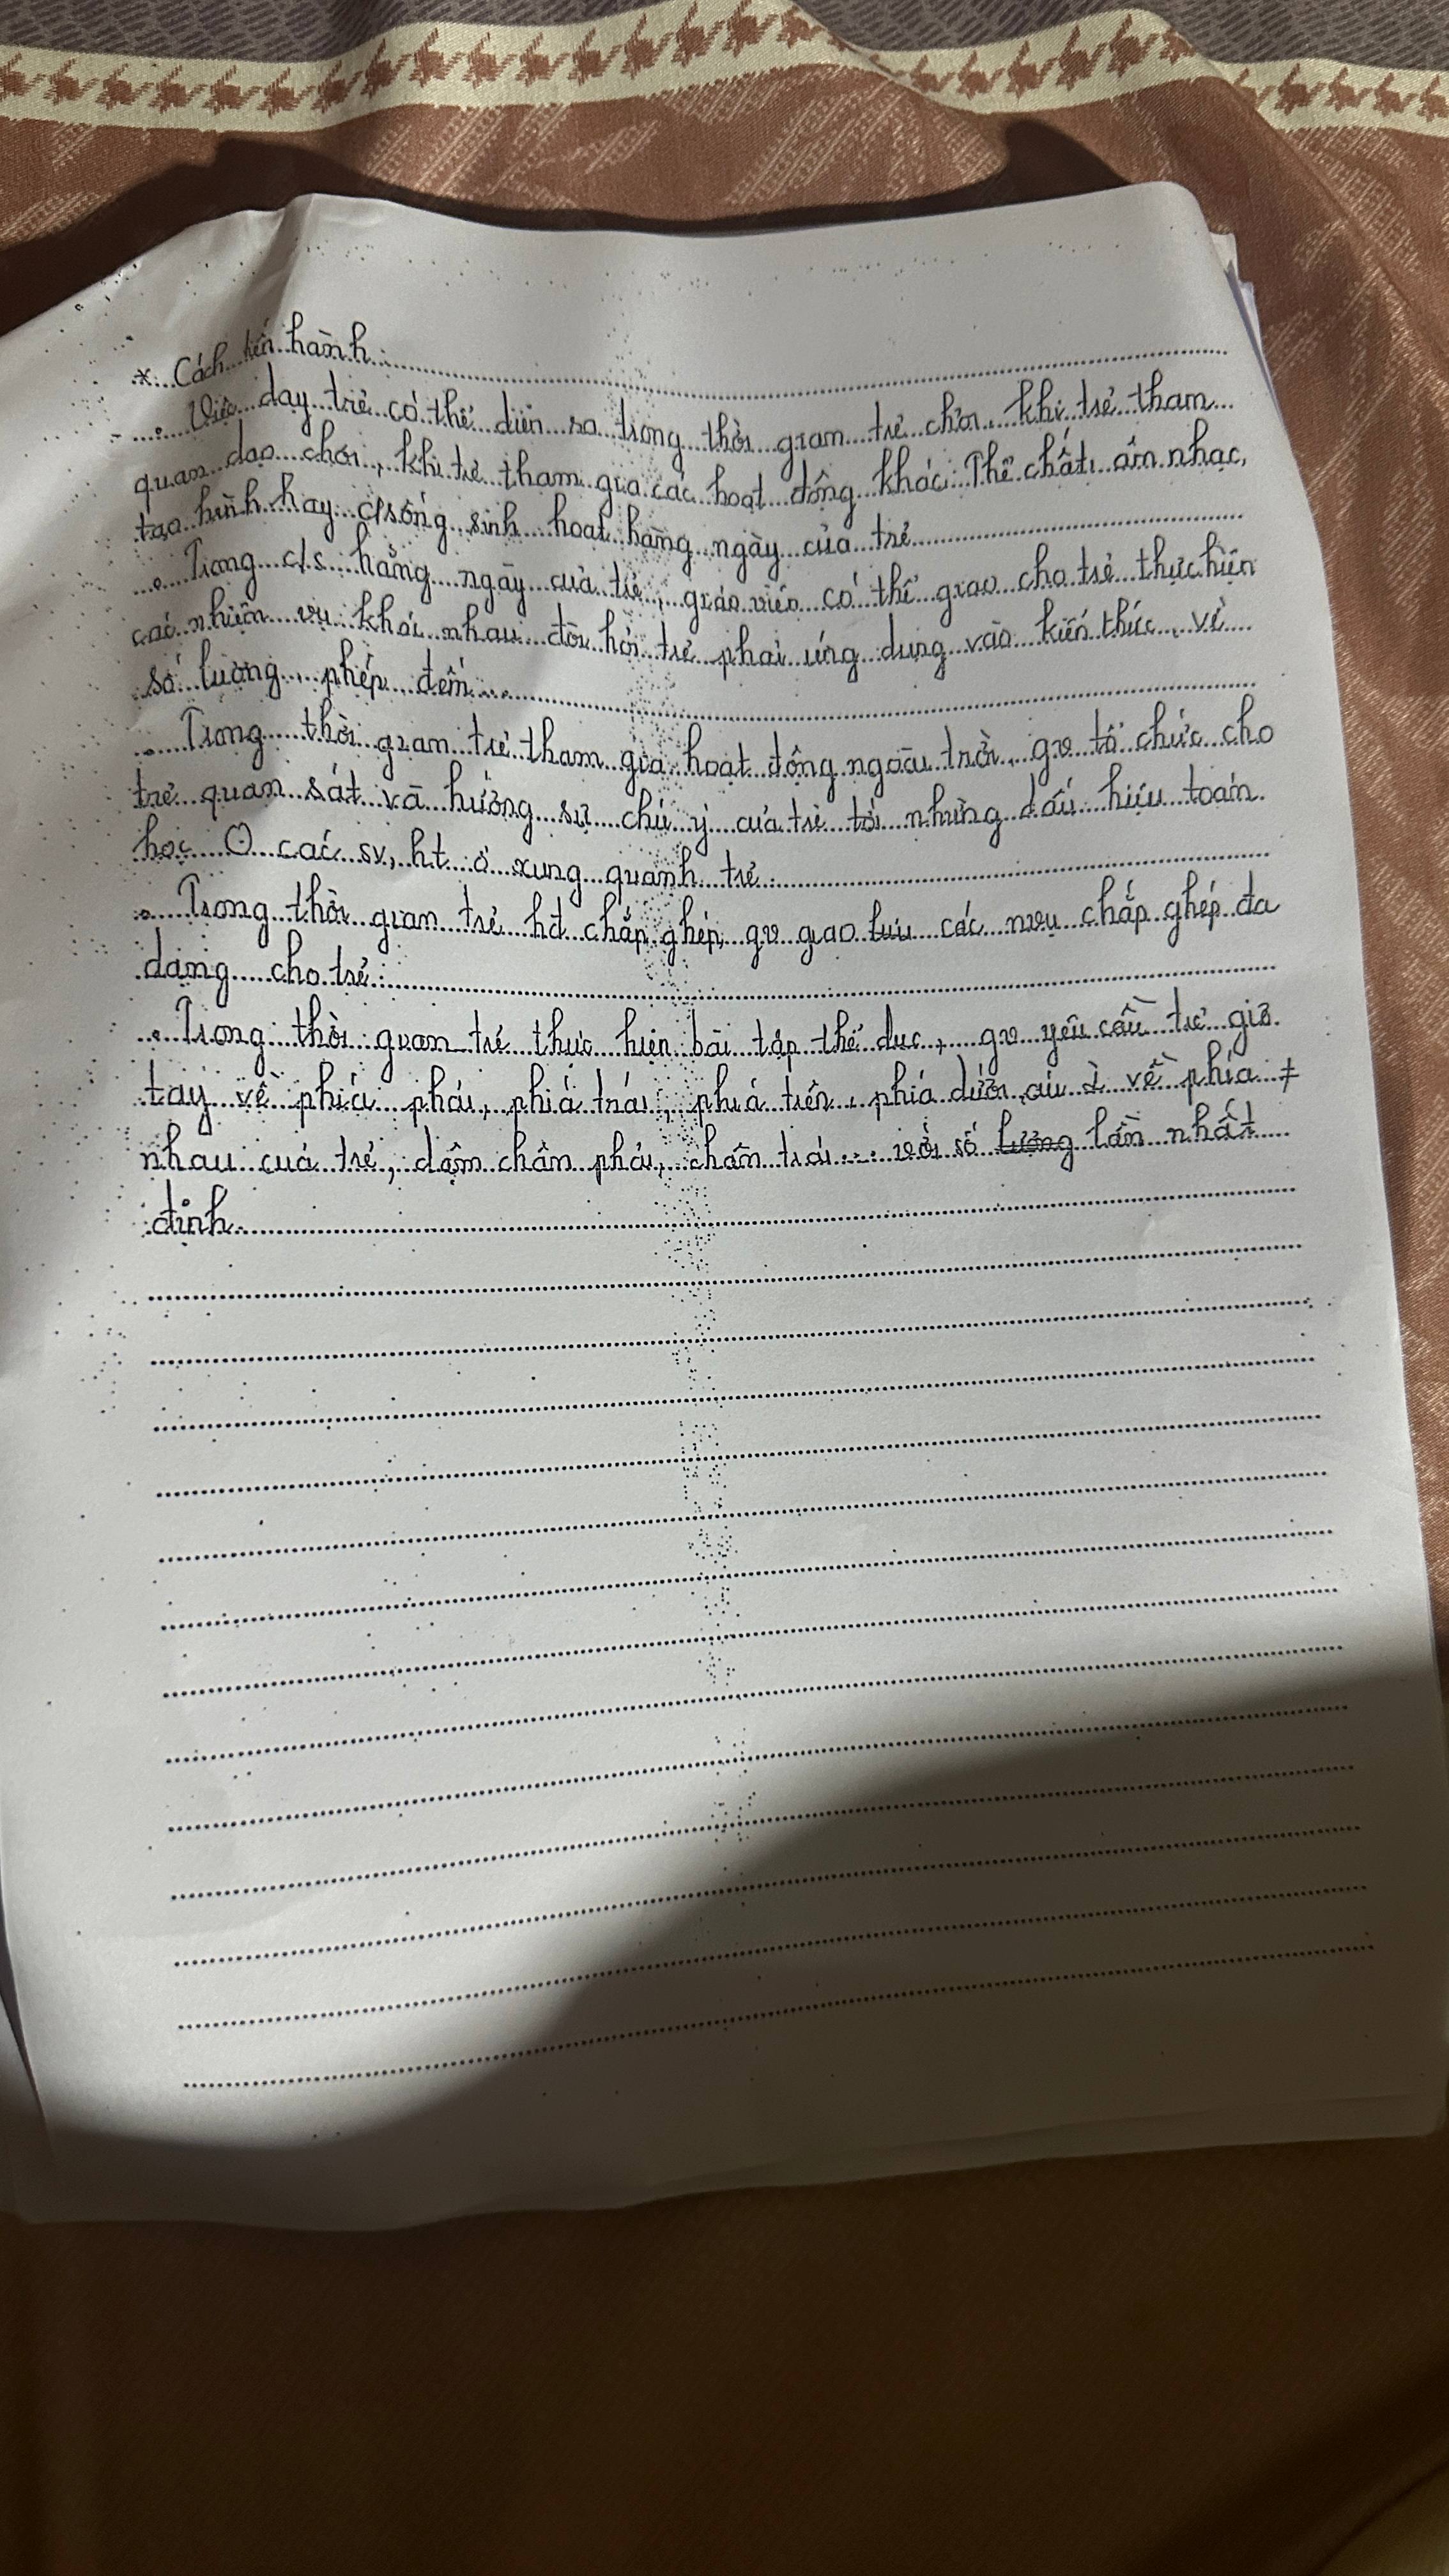 * Cách tiến hành
• Việc dạy trẻ có thể diễn ra trong thời gian trẻ chơi, khi trẻ tham
quan dạo chơi, khi trẻ tham gia các hoạt động khác: Thể chất, âm nhạc,
tạo hình hay c/sống sinh hoạt hàng ngày của trẻ
• Trong c/s hằng ngày của trẻ, giáo viên có thể giao cho trẻ thực hiện
các nhiệm vụ khác nhau đòi hỏi trẻ phải ứng dụng vào kiến thức về
số lượng, phép đếm...
• Trong thời gian trẻ tham gia hoạt động ngoài trời, gv tổ chức cho
trẻ quan sát và hướng sự chú ý của trẻ tới những dấu hiệu toán
học ở các sv, ht ở xung quanh trẻ.
• Trong thời gian trẻ hđ chắp ghép, gv giao các nvụ chắp ghép đa
dạng cho trẻ.
• Trong thời gian trẻ thực hiện bài tập thể dục, gv yêu cầu trẻ giơ
tay về phía phải, phía trái, phía trên, phía dưới, về phía ≠
nhau của trẻ, dậm chân phải, chân trái... với số lần nhất
định.